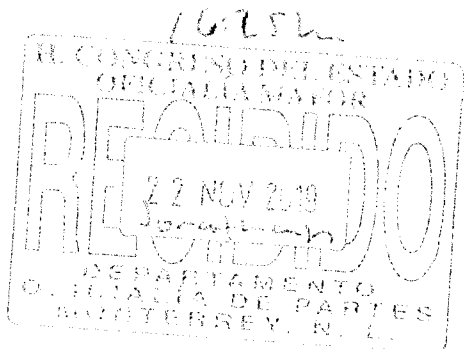 16:25h
H. CONGRESO DEL ESTADO
OFICIALIA MAYOR
RECIBIDO
22 NOV 2019
DEPARTAMENTO
OFICIALIA DE PARTES
MONTERREY, N. L.